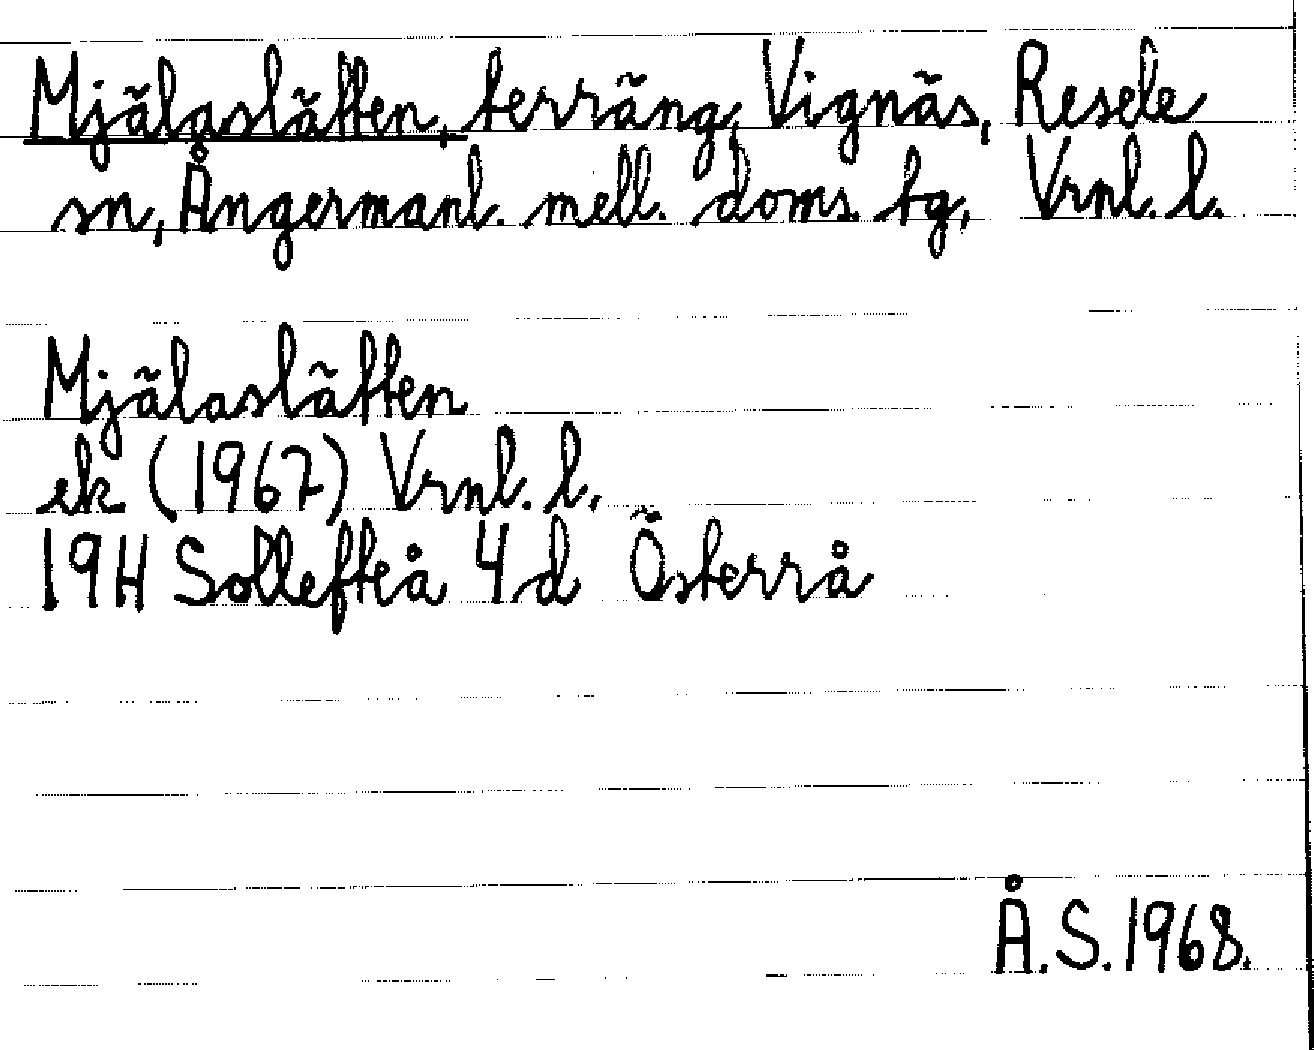 Mjälaslätten, terräng, Vignäs, Resele
sn, Ångermanl. mell. doms. tg, Vrnl. l.
Mjälaslätten
ek (1967) Vrnl. l.
19H Sollefteå 4d Österrå
Å.S. 1968.